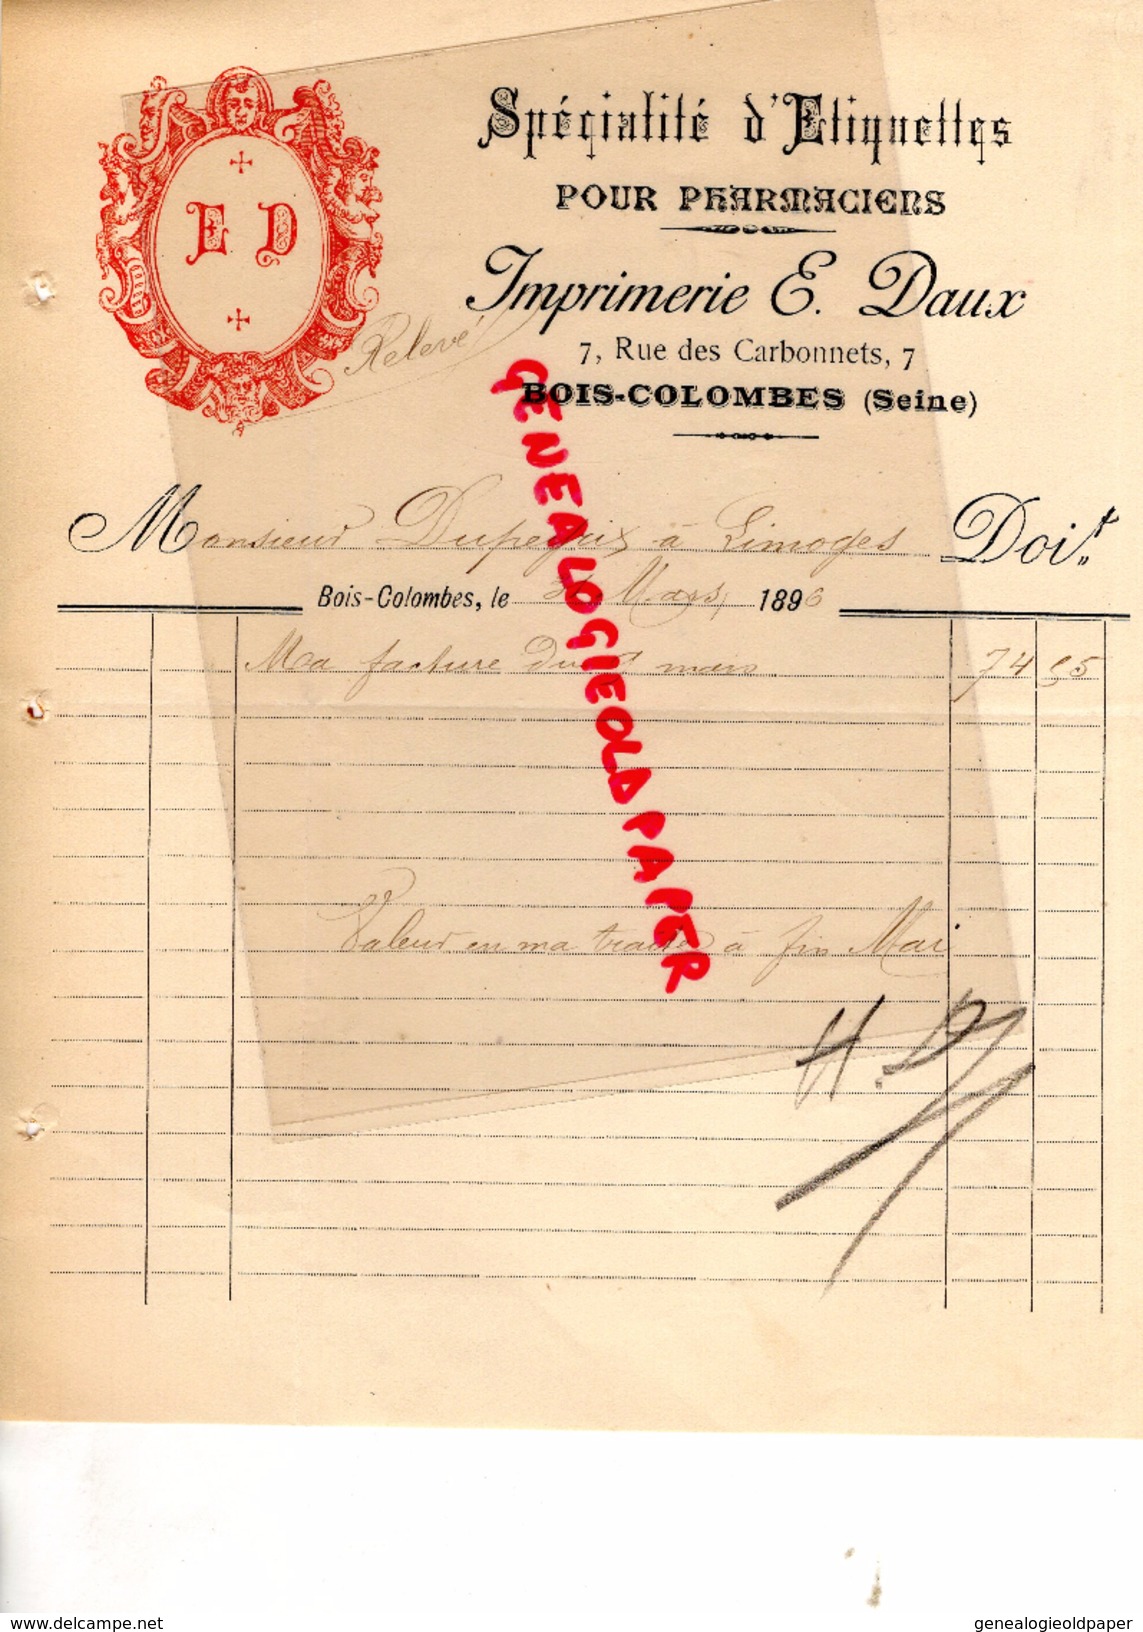 E D
Spécialité d'Etiquettes
POUR PHARMACIENS
Imprimerie E. Daux
7, Rue des Carbonnets, 7
BOIS-COLOMBES (Seine)
Relevé
GENEALOGIEOLDPAPER
Monsieur à Limoges Doit
Bois-Colombes, le Mars 1896
Ma facture du mars 74
Valeur en ma traite à fin Mai
H. D
www.delcampe.net
genealogieoldpaper